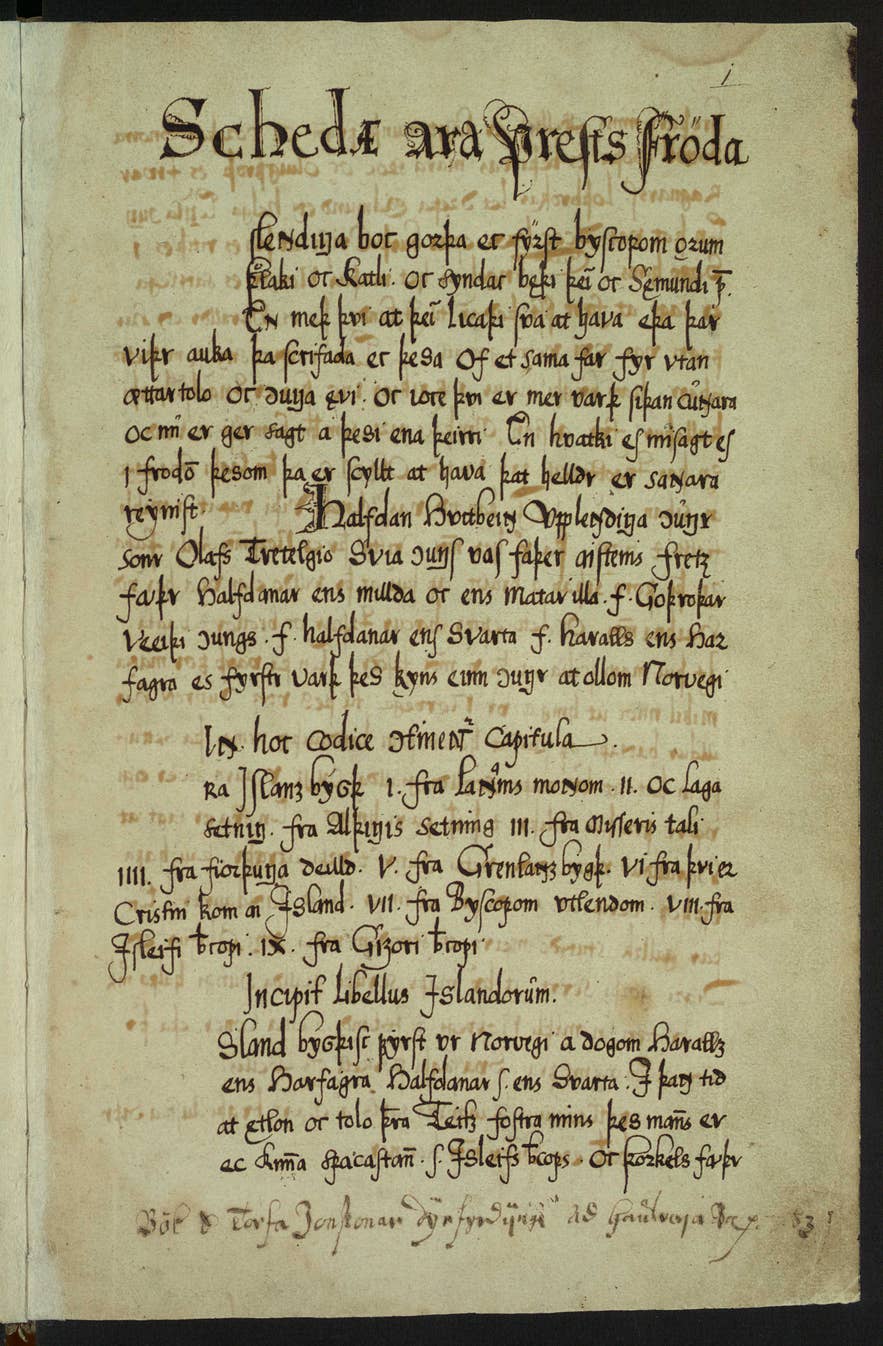 1
Schedæ ara Prests Fröda
slendiŋa boc gorþa ec fyrst byscopom ǫrum
þlaki oc Katli. oc syndac bęþi þeī oc Sęmundi p̄.
En meþ þvi at þeī licaþi sva at hava eþa þar
viþr auka þa scrifada ec þesa Of et sama far fyr vtan
ættartolo oc ɔuŋa ęvi. oc iocc þvi er mer varþ siþan cuɴara
oc nu er ger sagt a þesi ena þeirri En hvatki es missagt es
i frodō þesom þa er scyllt at hava þat helldr er saɴara
reynist. Halfdan Hvitbeiɴ Vpplendiŋa ɔuŋr
sonr Olafs Tretelgio Svia ɔuŋs vas faþer aisteins fretz
faþr Halfdanar ens millda oc ens matar illa. f. Goþroþar
Veiþi ɔungs. f. halfdanar ens Svarta f. haralls ens Har
fagra es fyrstr varþ þes kyns einn ɔuŋr at ollom Norvegi
Iɴ hoc codice ɔtinenᷓ Capitula.
ra Islanz bygþ I. fra Laɴams moɴom. II. oc laga
setniŋ. fra Alþiŋis setning III. fra misseris tali
IIII. fra fiorþuŋa deilld. V. fra Grenlanz bygþ. VI fra þvi er
Cristni kom ai Island. VII. fra Byscopom vtlendom. VIII. fra
Isleifi b̄copi. IX. fra Gizori b̄copi
Incipit Libellus Islandorum.
Sland bygþisc fyrst vr Norvegi a dogom Harallz
ens Harfagra Halfdanar s. ens Svarta. I þaɴ tid
at ętlon oc tolo þra Teitz fostra mins þes man̄s er
ec kun̄a spacastan̄. s. Isleifs b̄cops. Oc þorkels faþr
Bök Torfa Jonssonar